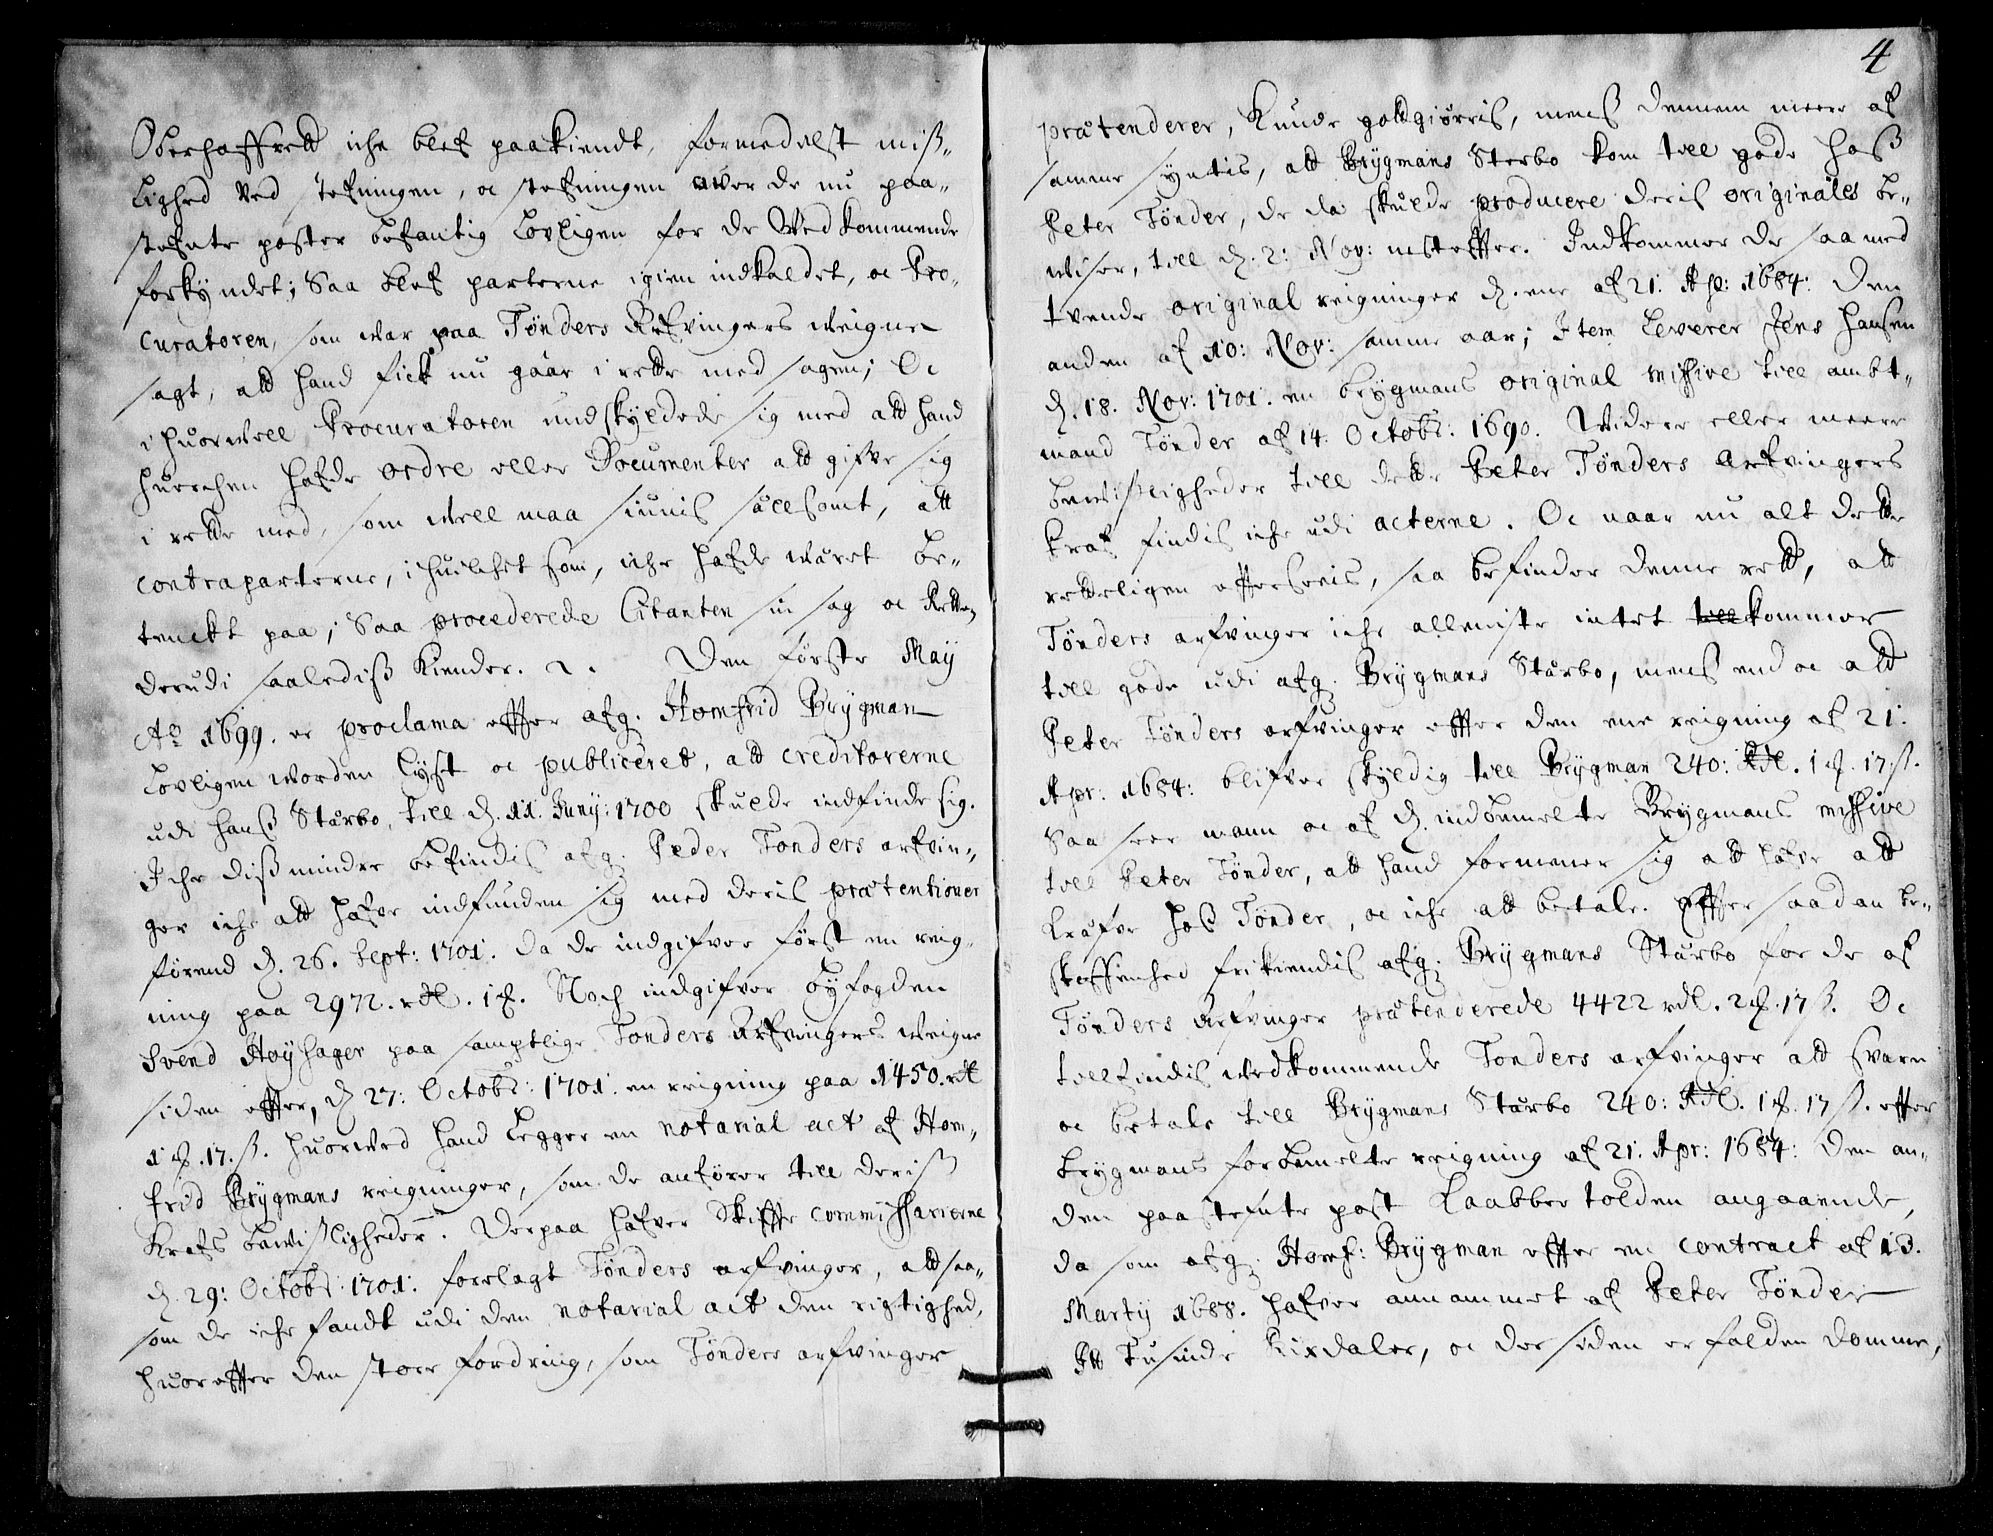 Oberhoffrett iche blef paakiendt, formedelst miß„
lighed ved stefningen, oc stefningen over de nu paa„
stefnte poster befantis lovligen for de Vedkommende
forkyndet; Saa blef parterne igien indkaldet, oc Pro„
curatoren, som war paa Tönders Arfvingers weigne
sagt, att hand fick nu gaar i rette med sagen; Oc
i huorwell Procuratoren undskyldede sig med att hand
huerchen hafde ordre eller Documenter att gifve sig
i rette med, som well maa siunis sällsomt, att
contraparterne, i huilchet som, iche hafde wäret be„
tenckt paa; Saa procederede Citanten sin sag oc Retten
derudi saalediß kiender. 1. Den förste May
Aº 1699. er proclama effter afg. Homfrid Brÿgman
lovligen worden lyst oc publiceret, att creditorerne
udi hanß Stärbo, till d. 11. Junÿ: 1700 skulde indfinde sig.
Iche dißmindre befindis afg. Peder Tonders arfvin„
ger iche att hafve indfunden sig med deris prætentioner
förend d. 26. Sept: 1701. da de indgifver först en reig„
ning paa 2972. rdl. 1 ₰. Noch indgifver byfogden
Svend Høyhager paa samptlige Tonders Arfvingers weigne
siden effter, d. 27: Octobr: 1701. en reigning paa 1450. rdl
1 ₰. 17. ß. huorved hand legger en notarial act af Hom„
frid Brÿgmans reigninger, som de anförer till deriß
krafs bewißligheder. Derpaa hafver Skiffte commissarierne
d. 29: Octobr: 1701. forelagt Tönders arfvinger, att saa„
som de iche fandt udi den notarial act den rigtighed,
huoreffter den store fordring, som Tönders arfvinger
4
prætenderer, kunde gottgiörris, mens dennem meere af
samme syntis, att Brÿgmans Sterbo kom till gode hoß
Peter Tönder, de da skulde producere deris originales be„
wiser, till d. 2: Nov: nesteffter. Indkommer de saa med
tvende original reigninger d. ene af 21. Apl: 1684. Den
anden af 10: Nov: samme aar; Item leverer Jens Hansen
d. 18. Nov: 1701. en brÿgmans original missive till ambt„
mand Tönder af 14. Octobr: 1690. Widere eller meere
bewißligheder till dette Peter Tönders Arfvingers
kraf findis iche udi acterne. Oc naar nu alt dette
rettligen effterseeis, saa befinder denne rett, att
Tönders arfvinger iche alleniste intet till kommer
till gode udi afg. Brÿgmans Stärbo, mens end oc att
Peter Tönders arfvinger effter den ene reigning af 21.
Apr: 1684: blifver skÿldig till Brÿgman 240: Rdl. 1 ₰. 17. ß.
Saa seer mann oc af d. indbemelte Brÿgmans missive
till Peter Tönder, att hand formener sig att hafve att
kräfve hoß Tönder, oc iche att betale. Effter saadan be„
skaffenhed frikiendis afg. Brÿgmans Stärbo for de af
Tönders Arfvinger prætenderede 4422 rdl. 2 ₰. 17 ß. Oc
tillfindis vedkommende Tonders arfvinger att svare
oc betale till Brÿgmans Stärbo 240: Rdl. 1 ₰. 17 ß. effter
brÿgmans forbemelte reigning af 21. Apr: 1684: Den an„
den paastefnte post Laabber tolden angaaende,
da som afg. Homf: Brÿgman effter en contract af 13.
Martÿ 1688. hafver annammet af Peter Tönder
Ett Tusinde Rixdaler, oc der siden er falden domme,